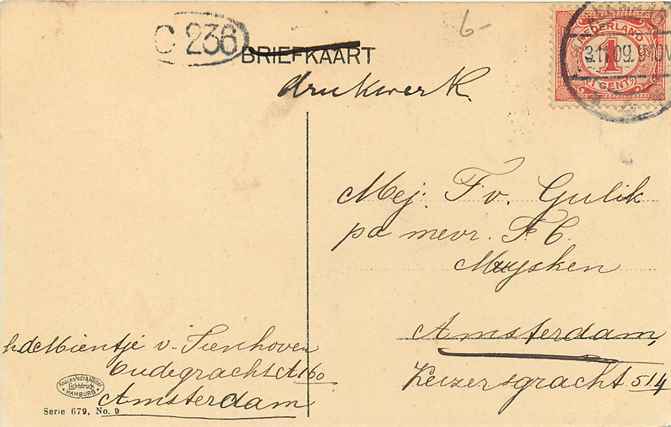 C 236
BRIEFKAART
drukwerk
6-
NEDERLAND
1
CENT
3.11.09. 9
Mej. F v. Gulik
pa mevr. F. C.
Muysken
Amsterdam,
Keizersgracht 514
Mientje v. Tienhoven
Oudegracht A160
Amsterdam
HAMBURG
Serie 679, No. 9